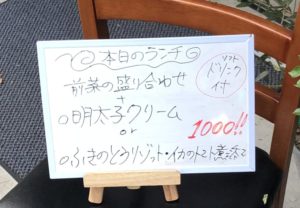 ◎本日のランチ◎
ソフト
ドリンク
付
前菜の盛り合わせ
+
○明太子クリーム
or
1000!!
○ふきのとうリゾット・イカのトマト煮添え